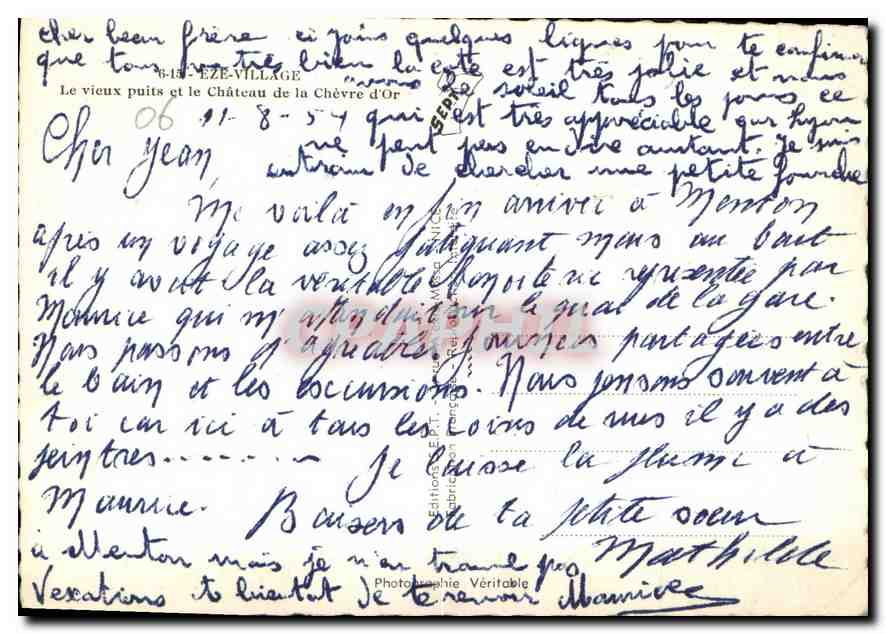 cher beau frère ci joins quelques lignes pour te confirmer
que tous va très bien la côte est très jolie et nous
6-15 - EZE-VILLAGE
Le vieux puits et le Château de la Chèvre d'Or
avons le soleil tous les jours ce
06 11-8-54 qui est très appréciable que Lyon
SEPT
Cher Jean, ne peut pas en dire autant. Je suis
entrain de chercher une petite fourche
Me voilà enfin arrivée à Menton
après un voyage assez fatiguant mais au bout
il y avait la véritable représentée par
Maurice qui m'attendait sur le quai de la gare.
CPAPHIL
Nous passons d'agréables journées partagées entre
le bain et les excursions. Nous pensons souvent à
toi car ici à tous les coins de rues il y a des
peintres........ Je laisse la plume à
Maurice. Baisers de ta petite soeur
Mathilde
à Menton mais je n'en trouve pas
Vexations à bientôt de te revoir Maurice
Editions S.E.P.T. - NICE
Fabrication Française - Reproduction Interdite
Photographie Véritable